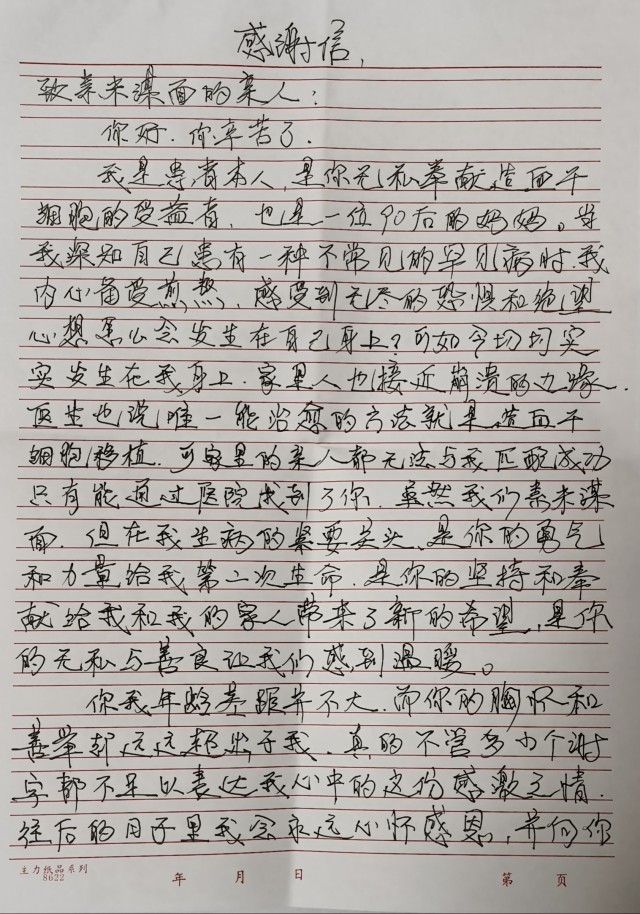 感谢信,
致素未谋面的亲人:
你好.你辛苦了.
我是患者本人,是你无私奉献造血干
细胞的受益者,也是一位90后的妈妈。当
我深知自己患有一种不常见的罕见病时.我
内心备受煎熬,感受到无尽的恐惧和绝望
心想怎么会发生在自己身上?可如今切切实
实发生在我身上.家里人也接近崩溃的边缘.
医生也说唯一能治愈的方法就是造血干
细胞移植.可家里的亲人都无法与我匹配成功
只有能通过医院找到了你.虽然我们素未谋
面.但在我生病的紧要关头,是你的勇气
和力量给我第二次生命.是你的坚持和奉
献给我和我的家人带来了新的希望,是你
的无私与善良让我们感到温暖。
你我年龄差距并不大.而你的胸怀和
善举却远远超出于我.真的不管多少个谢
字都不足以表达我心中的这份感激之情.
往后的日子里我会永远心怀感恩,并向你
主力纸品系列
8622
年 月 日 第 页